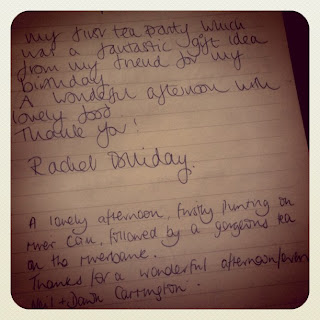 my first tea party which
was a fantastic gift idea
from my friend for my
birthday.
A wonderful afternoon with
lovely food.
Thank you!
Rachel Dolliday.
A lovely afternoon, firstly punting on
river Cam, followed by a gorgeous tea
on the riverbank.
Thanks for a wonderful afternoon/
+ Dawn Carrington.